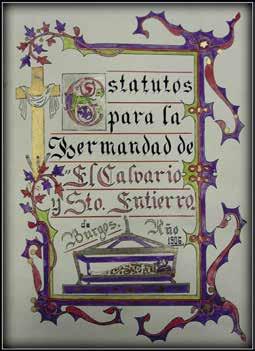 Estatutos
para la
Hermandad de
"El Calvario
y Sto. Entierro
de
Burgos. Año
1905